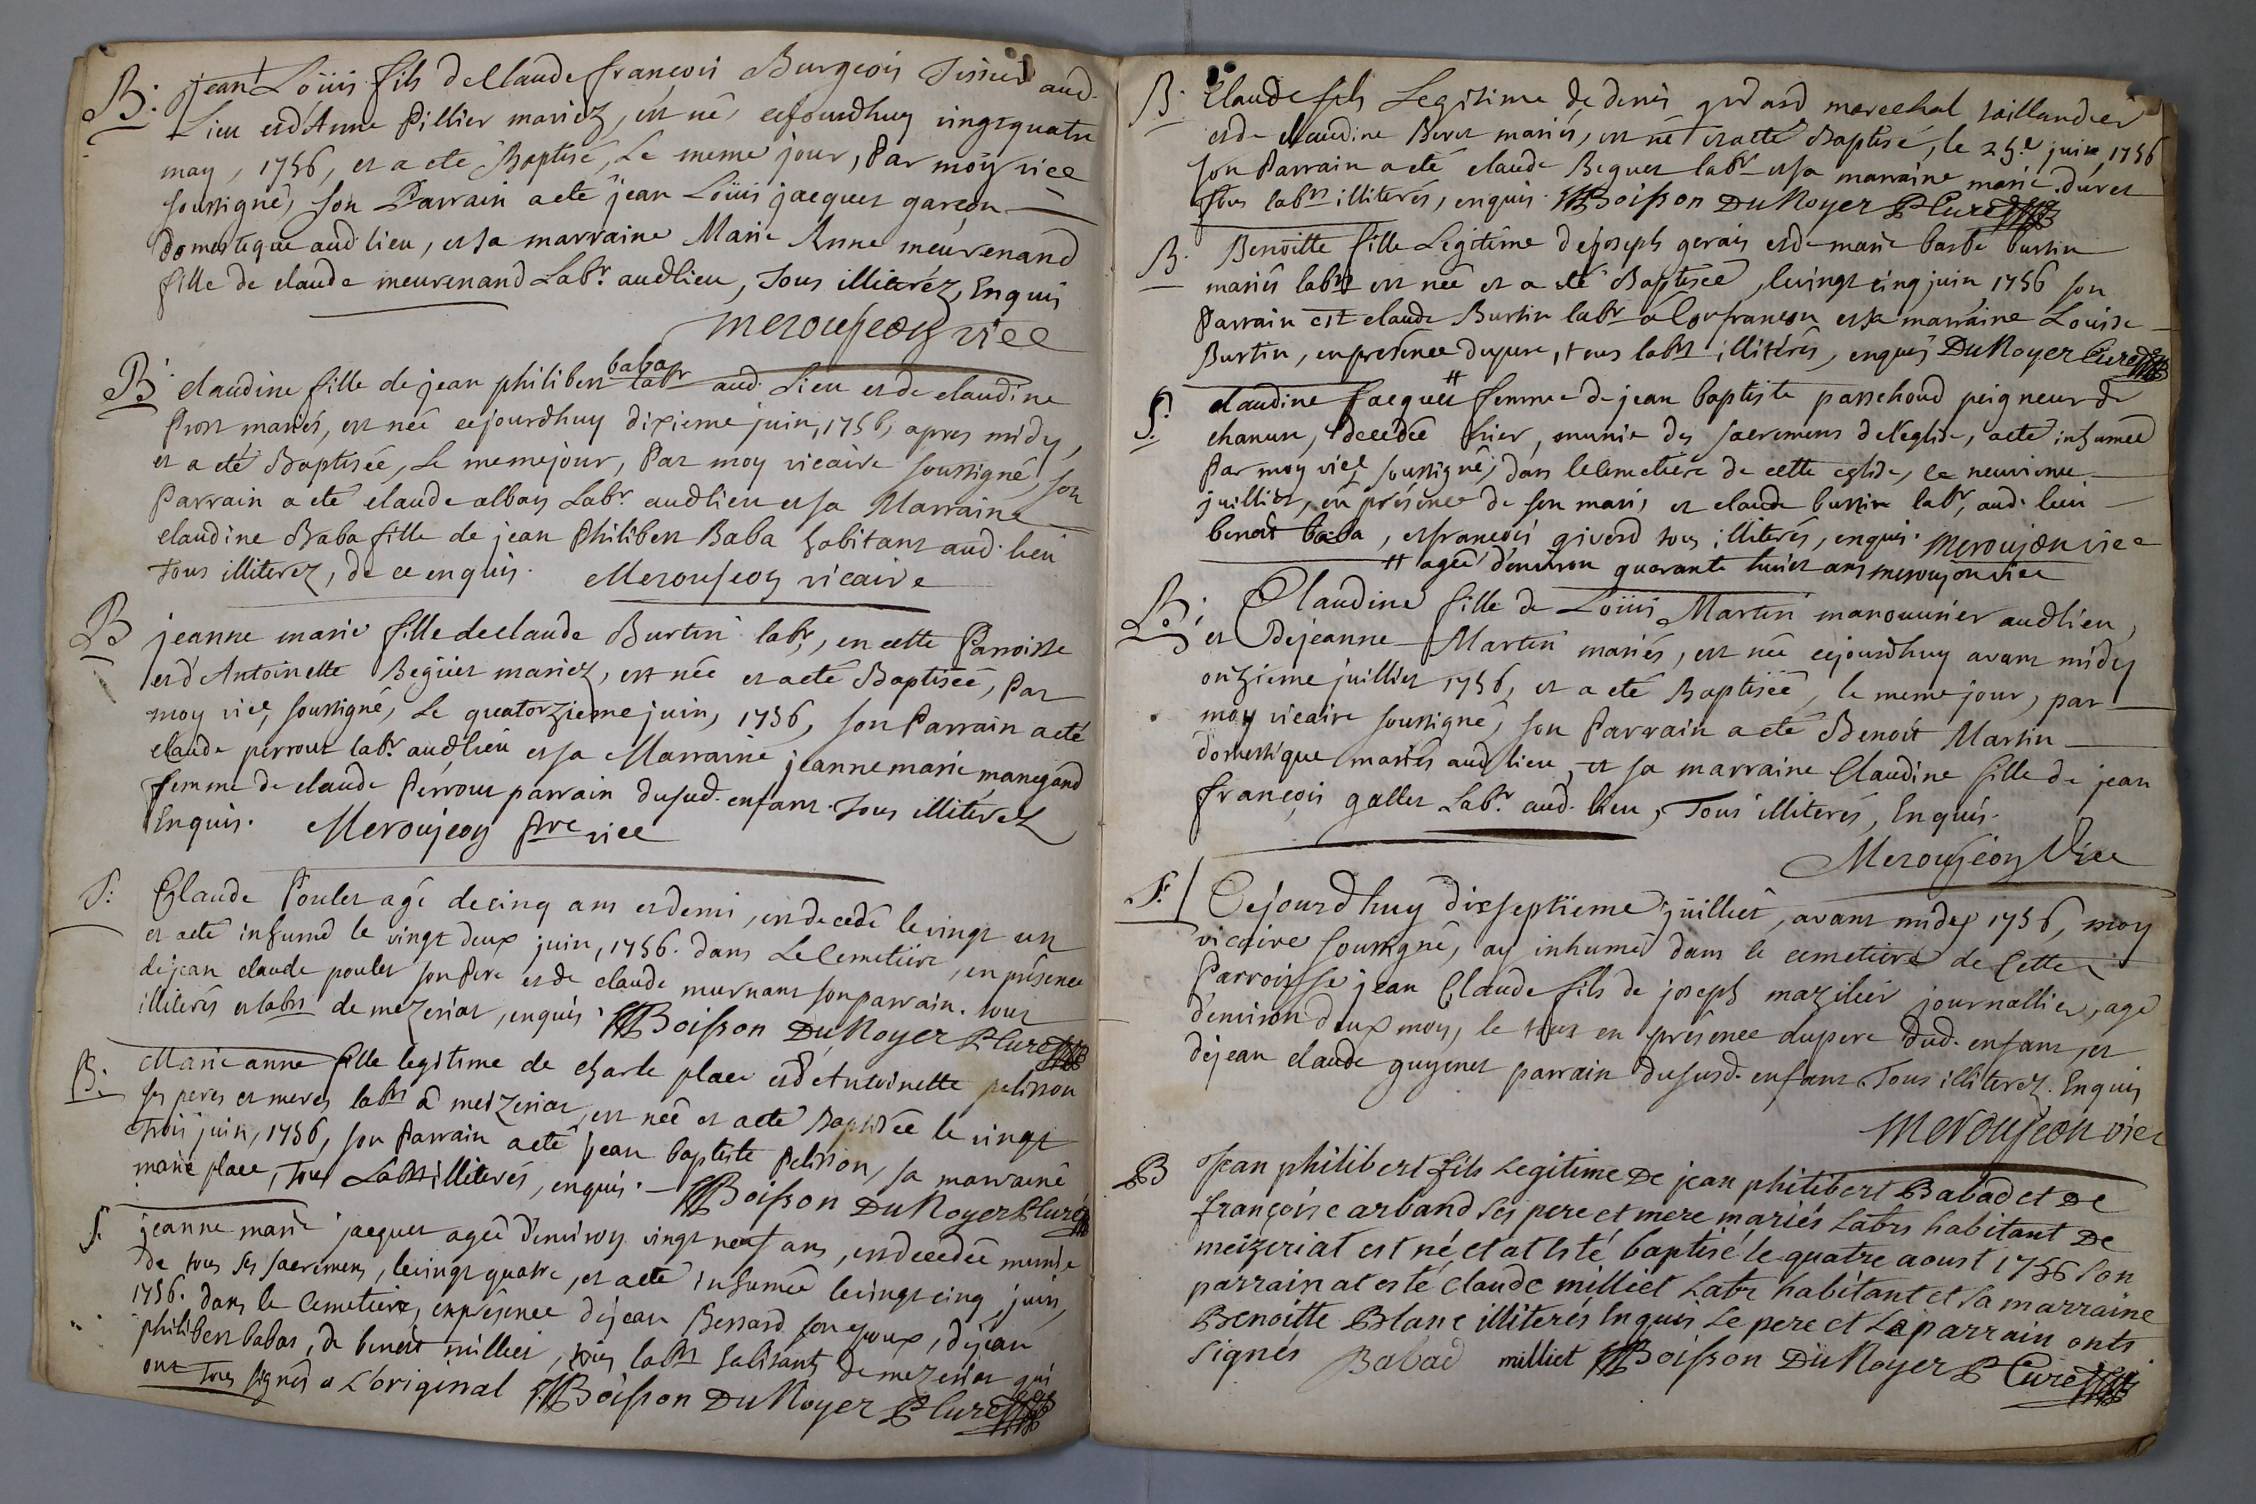 B. jean Loüis fils de Claude françois Burgeois Tissier aud.
Lieu et d'Anne Pillier mariez, est né cejourdhuy vingt quatre
may, 1756, et a eté Baptisé, Le meme jour, Par moy vice
soussigné, son Parrain a eté jean Loüis jacquet garçon
domestique aud. lieu, et sa marraine Marie Anne meurenand
fille de claude meurenand Labr. aud lieu, Tous illiteréz, Enquis
meroujeon vice
B. claudine fille de jean philibert baba labr aud. Lieu et de claudine
Prost mariés, est née cejourdhuy dixieme juin, 1756, apres midy,
et a eté Baptisée, Le meme jour, Par moy vicaire soussigné, son
Parrain a eté claude alban Labr. aud lieu et sa Marraine
claudine Baba fille de jean Philibert Baba habitant aud. lieu
Tous illiterez, de ce enquis. Meroujeon vicaire
B jeanne marie fille de claude Burtin labr, en cette Parroisse
et d'Antoinette Beguet mariez, est née et a eté Baptisée, Par
moy vice, soussigné, Le quatorzieme juin, 1756, son Parrain a eté
claude perrout labr aud lieu et sa Marraine jeanne marie manegand
femme de claude Perrout parrain dusud. enfant. Tous illiterez
Enquis. Meroujeon ptre vice
S. Claude Poulet agé de cinq ans et demi, est decedé le vingt un
et a eté inhumé le vingt deux juin, 1756. dans Le Cemetiere, en présence
de jean claude poulet son Pere et de claude murnant son parrain. tous
illiterés et labrs de mezeriat, enquis. Boisson DuNoyer P Curé
B. Marie anne fille legitime de charle place et d'Antoinette pelisson
ses peres et meres labrs à meizeriat, est née et a eté Baptisée le vingt
trois juin, 1756, son Parrain a eté jean baptiste Pelisson, sa marraine
marie place, Tous Labrs illiterés, enquis. Boisson DuNoyer P Curé
S. jeanne marie jacquet agée d'environ vingt neuf ans, est decedée munie
de tous ses sacremens, le vingt quatre, et a eté inhumée le vingt cinq juin,
1756. dans le Cemetiere, en présence de jean Bessard son epoux, de jean
philibert babat, de benoit milliet, tous labrs habitants de mezeriat qui
ont tous signés a L'original Boisson DuNoyer P Curé
B. Claude fils Legitime de denis girard marechal taillandier
et de claudine Buret mariés, est né et a eté Baptisé, le 25e juin 1756
son Parrain a eté claude Beguet labr et sa marraine marie duret
tous labrs illiterés, enquis. Boisson DuNoyer P Curé
B. Benoitte fille Legitime de joseph gerais et de marie barbe burtin
mariés labrs est née et a eté Baptisée, le vingt cinq juin 1756 son
Parrain est claude Burtin labr à Confrançon et sa marraine Louise
Burtin, en presence du pere, tous labrs illitérés, enquis DuNoyer Curé
S. claudine Jacquet # femme de jean baptiste passehoud peigneur de
chanvre, decedée hier, munie des sacremens de l'eglise, a eté inhumée
Par moy vice soussigné, dans le Cemetiere de cette eglise, ce neuvieme
juilliet, en présence de son mari, et claude burtin labr, aud. lieu
benoit baba, et françois giverd tous illiterés, enquis. Meroujeon vice
# agée d'environ quarante huict ans meroujon vice
B. Claudine fille de Loüis Martin manouvrier aud lieu,
et De jeanne Martin mariés, est née cejourdhuy avant midy
onzieme juilliet 1756, et a eté Baptisée, le meme jour, par
moy vicaire soussigné, son Parrain a eté Benoit Martin
domestique mariés aud lieu, et sa marraine Claudine fille de jean
françois gallet Labr. aud. lieu, Tous illiterés, Enquis.
Meroujeon Vice
S. Cejourdhuy dix septieme juilliet, avant midy 1756, moy
vicaire soussigné, ay inhumé dans le cemetiere de Cette
Parroisse jean Claude fils de joseph mazilier journallier, agé
d'environ deux moys, le tout en présence du pere dud. enfant, et
de jean claude guyenet parrain dususd. enfant. Tous illiterez. Enquis
meroujeon vice
B Jean philibert fils Legitime De jean philibert Babad et De
françoise arband ses pere et mere mariés Labrs habitant De
meizeriat est né et at esté baptisé le quatre aoust 1756 son
parrain at esté claude milliet Labr habitant et sa marraine
Benoitte Blanc illiterés Enquis Le pere et Le parrain onts
signés Babad milliet Boisson DuNoyer P Curé